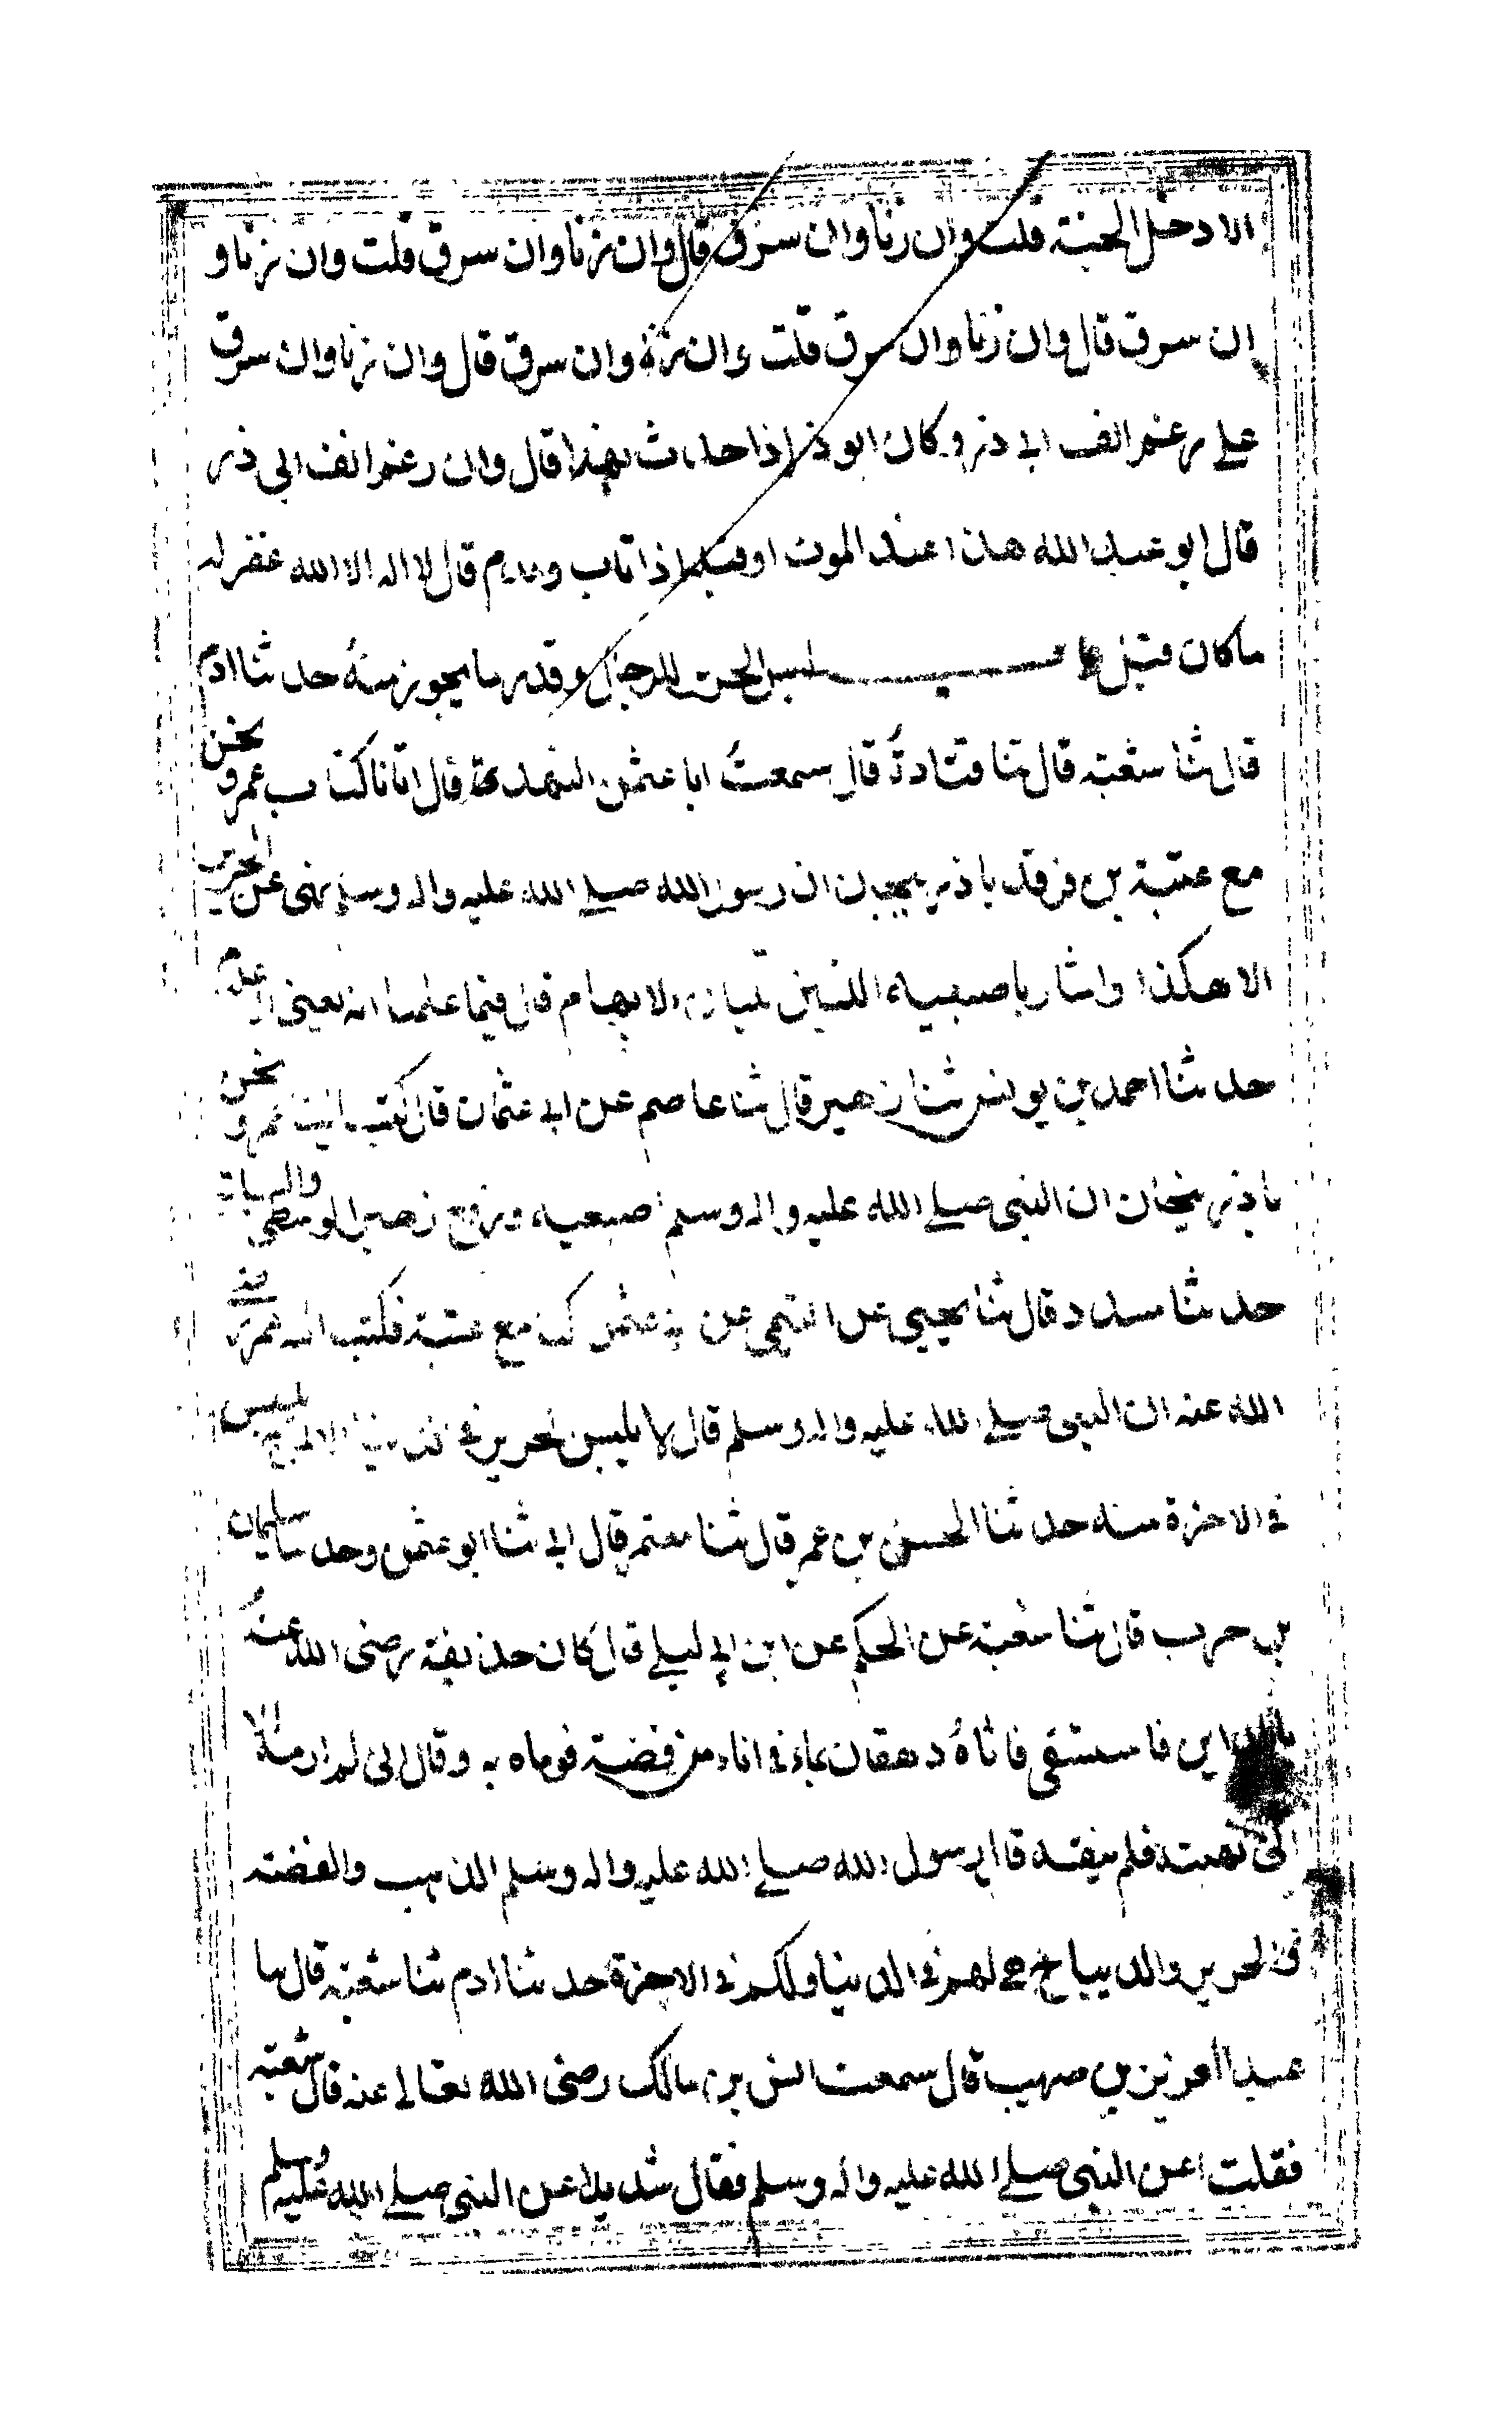 الا دخل الجنة قلت وان زنا وان سرق قال وان زنا وان سرق قلت وان زنا و
ان سرق قال وان زنا وان سرق قلت وان زنا وان سرق قال وان زنا وان سرق
علے رغم انف ابے ذر وكان ابو ذر اذا حدث بهذا قال وان رغم انف ابى ذر
قال ابو عبد الله هذا عند الموت او قبله اذا تاب وندم قال لا اله الا الله غفر له
ما كان قبل باب لبس الحرير للرجال وقدر ما يجوز منه حدثنا ادم
قال ثنا شعبة قال ثنا قتادة قال سمعت ابا عثمن النهدى قال اتانا كتاب عمر ونحن
مع عتبة بن فرقد باذربيجان ان رسول الله صلے الله عليه واله وسلم نهى عن الحرير
الا هكذا واشار باصبعيه اللتين تليان الابهام قال فيما علمنا انه يعنى الاعلام
حدثنا احمد بن يونس ثنا زهير قال ثنا عاصم عن ابے عثمان قال كتب الينا عمر ونحن
باذربيجان ان النبى صلے الله عليه واله وسلم اصبعيه ورفع زهير الوسطى والسبابة
حدثنا مسدد قال ثنا يحيى عن التيمى عن ابے عثمن كنا مع عتبة فكتب اليه عمر رضے
الله عنه ان النبى صلے الله عليه واله وسلم قال لا يلبس الحرير فى الدنيا الا لم يلبس
فے الاخرة منه حدثنا الحسن بن عمر قال ثنا معتمر قال ابے ثنا ابو عثمن وحدثنا سليمان
بن حرب قال ثنا شعبة عن الحكم عن ابن ابے ليلے قال كان حذيفة رضى الله عنه
بالمداين فاستسقى فاتاه دهقان بماء فى اناء من فضة فرماه به وقال انى لم ارمه الا
انى نهيته فلم ينته قال رسول الله صلے الله عليه واله وسلم الذهب والفضة
والحرير والديباج هے لهم فى الدنيا ولكم فى الاخرة حدثنا ادم ثنا شعبة قال ثنا
عبد العزيز بن صهيب قال سمعت انس بن مالك رضى الله تعالى عنه قال شعبة
فقلت اعن النبى صلے الله عليه واله وسلم فقال شديدا عن النبى صلے الله عليه وسلم